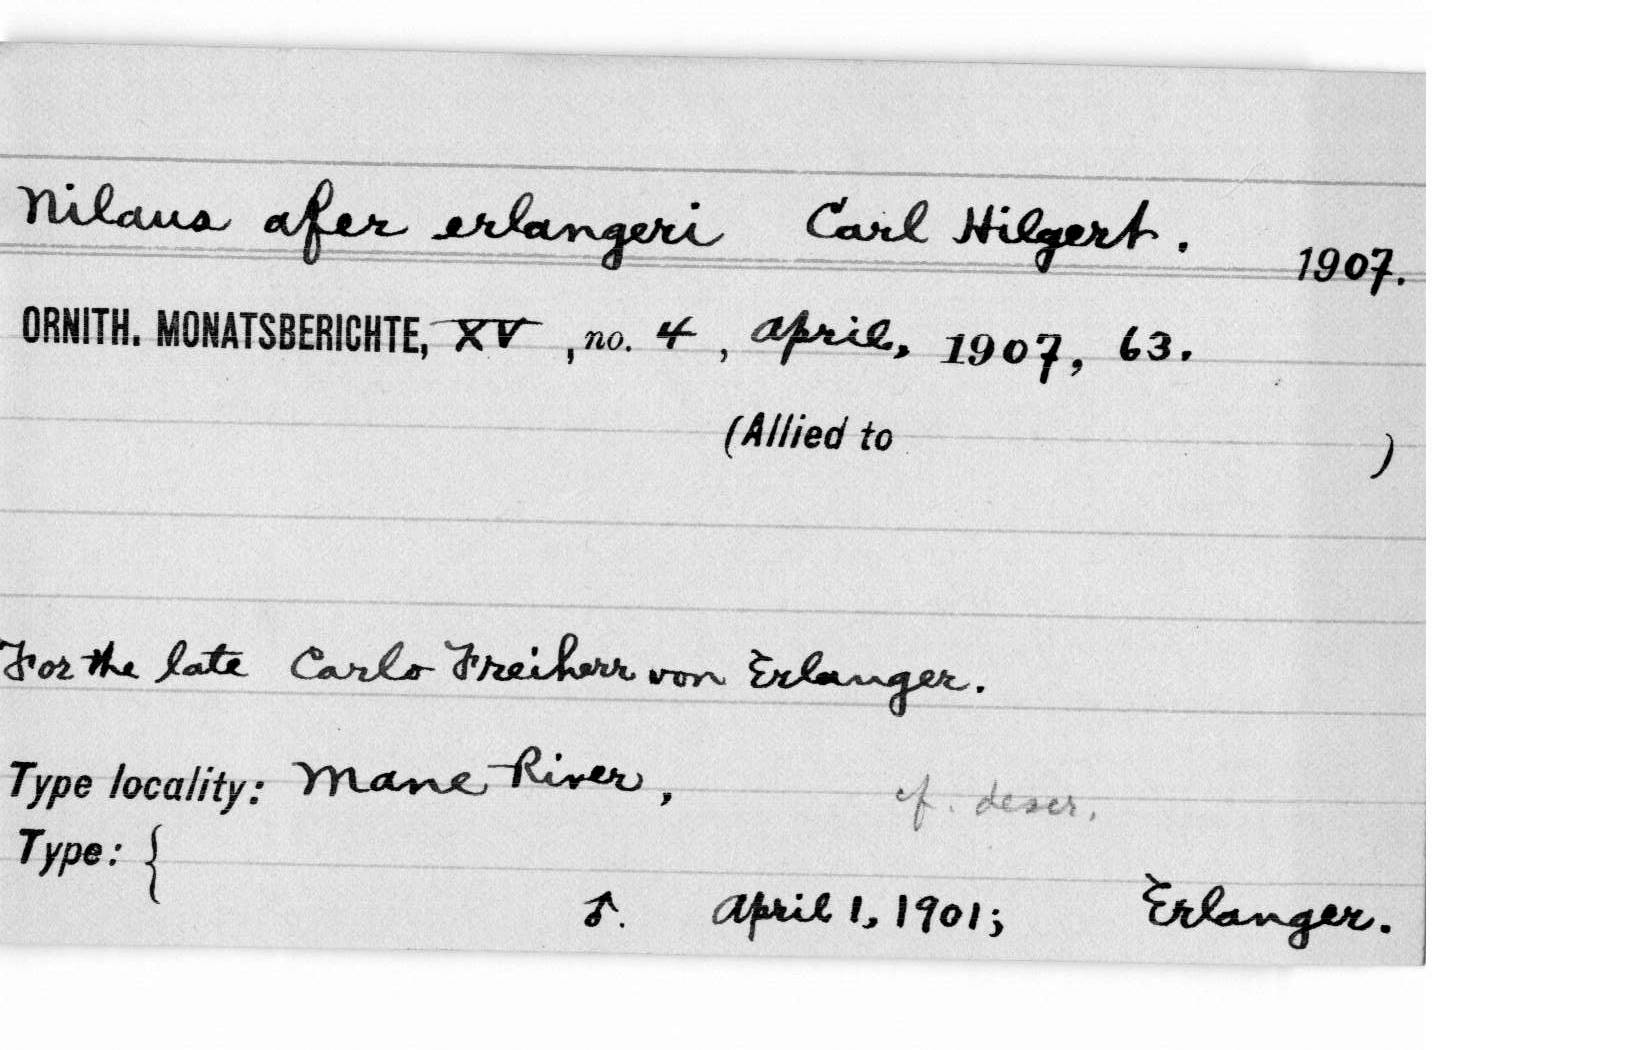 Nilaus afer erlangeri Carl Hilgert. 1907.
ORNITH. MONATSBERICHTE, XV, no. 4, April, 1907, 63.
(Allied to )
For the late Carlo Freiherr von Erlanger.
Type locality: Mane River, cf. descr.
Type: {
♂. April 1, 1901; Erlanger.